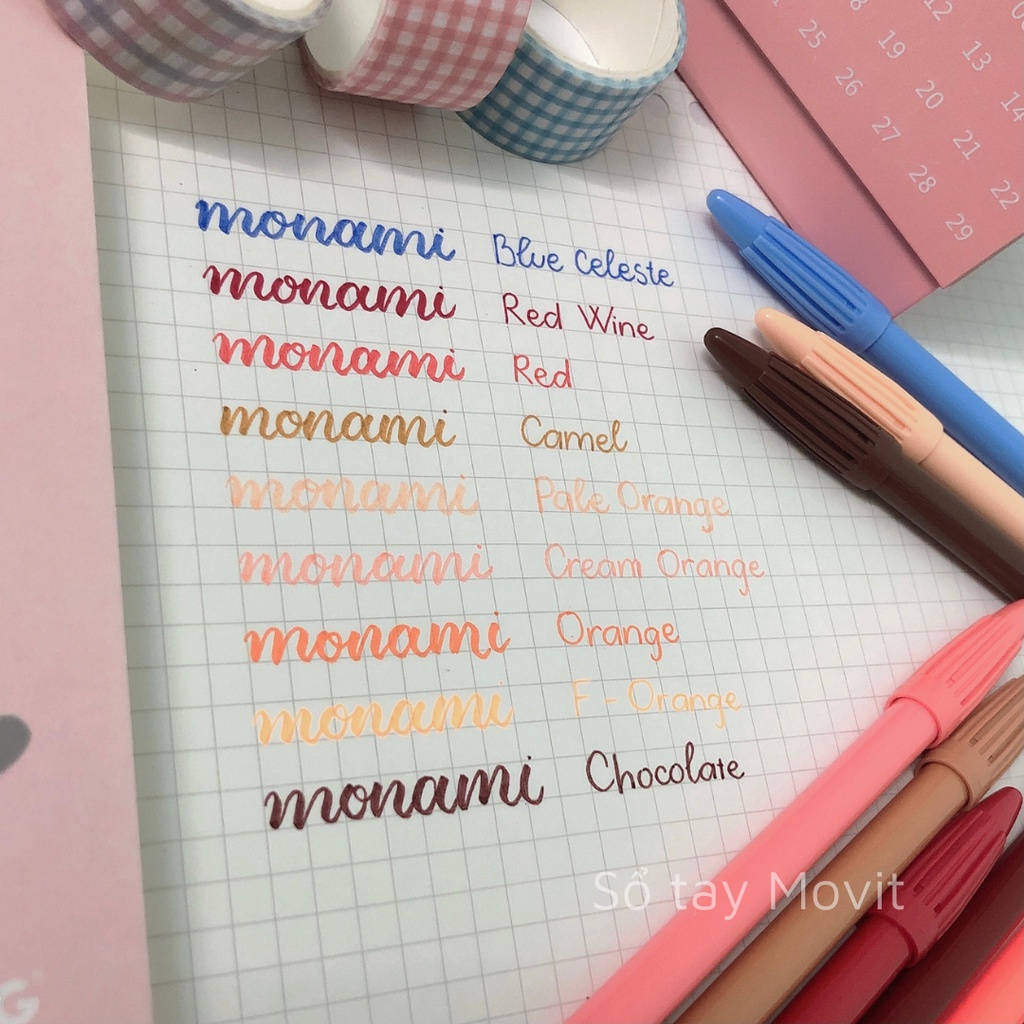 12
13
14
25
19
20
21
22
26
27
28
29
monami Blue Celeste
monami Red Wine
monami Red
monami Camel
monami Pale Orange
monami Cream Orange
monami Orange
monami F - Orange
monami Chocolate
Sổ tay Movit
G